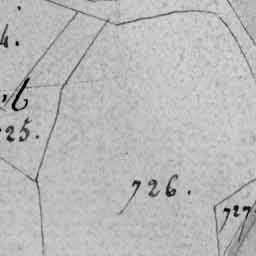 4.
25.
726.
727